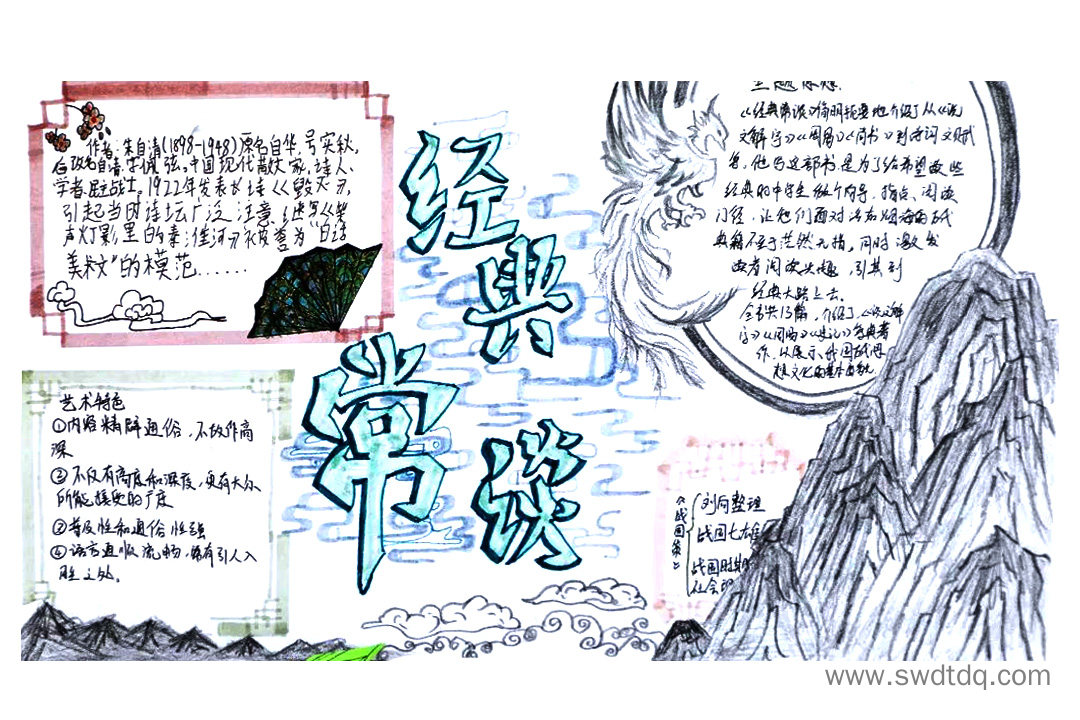 作者：朱自清(1898-1948)原名自华，号实秋，
后改名自清，字佩弦，中国现代散文家，诗人，
学者，民主战士，1922年发表长诗《毁灭》，
引起当时诗坛广泛注意，《桨
声灯影里的秦淮河》被誉为“白话
美术文”的模范……
经典
常谈
艺术特色
①内容精辟通俗，不故作高
深
②不仅有高度和深度，更有大众
所能接受的广度
③普及性和通俗性强
④语言通畅，有引人入
胜之处。
《经典常谈》简明扼要地介绍了从《说
文解字》《周易》《尚书》到诗词文赋
等，他写这部书是为了给希望读些
经典的中学生做个向导，指点阅读
门径，让他们面对浩如烟海的古代
典籍不至于茫然无措，同时激发
读者阅读兴趣，引其到
经典大路上去。
全书共13篇，介绍了《说文解
字》《周易》《史记》等典著
作，以展示我国古代思
想文化的基本面貌
《战国策》
刘向整理
战国七雄
战国时期
社会
www.swdtdq.com